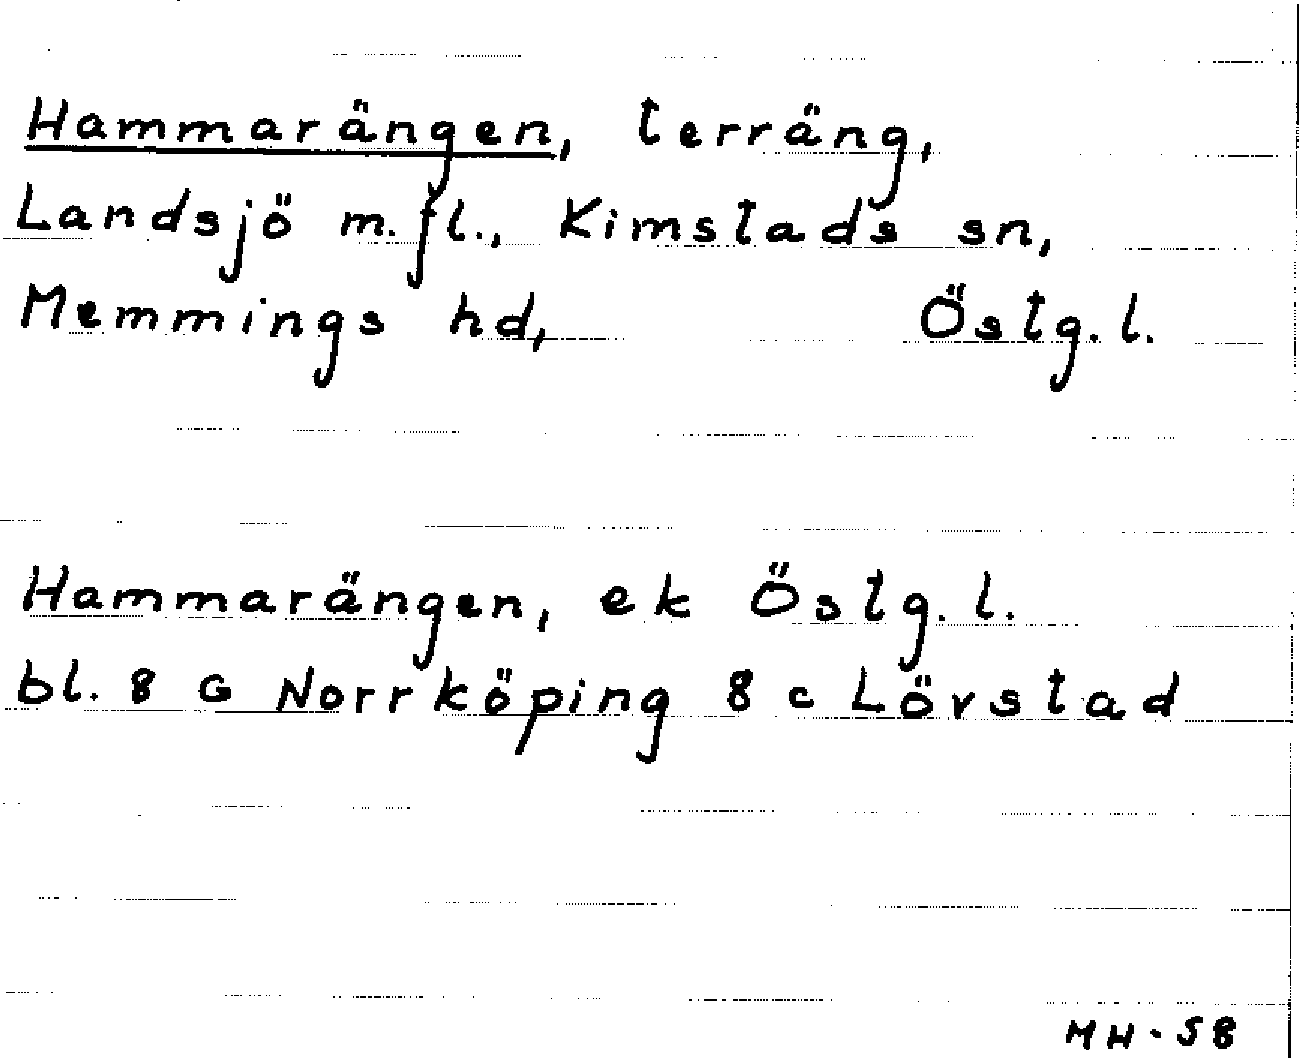 Hammarängen, terräng,
Landsjö m.fl., Kimstads sn,
Memmings hd, Östg.l.
Hammarängen, ek Östg.l.
bl. 8 G Norrköping 8 c Lövstad
MH-58